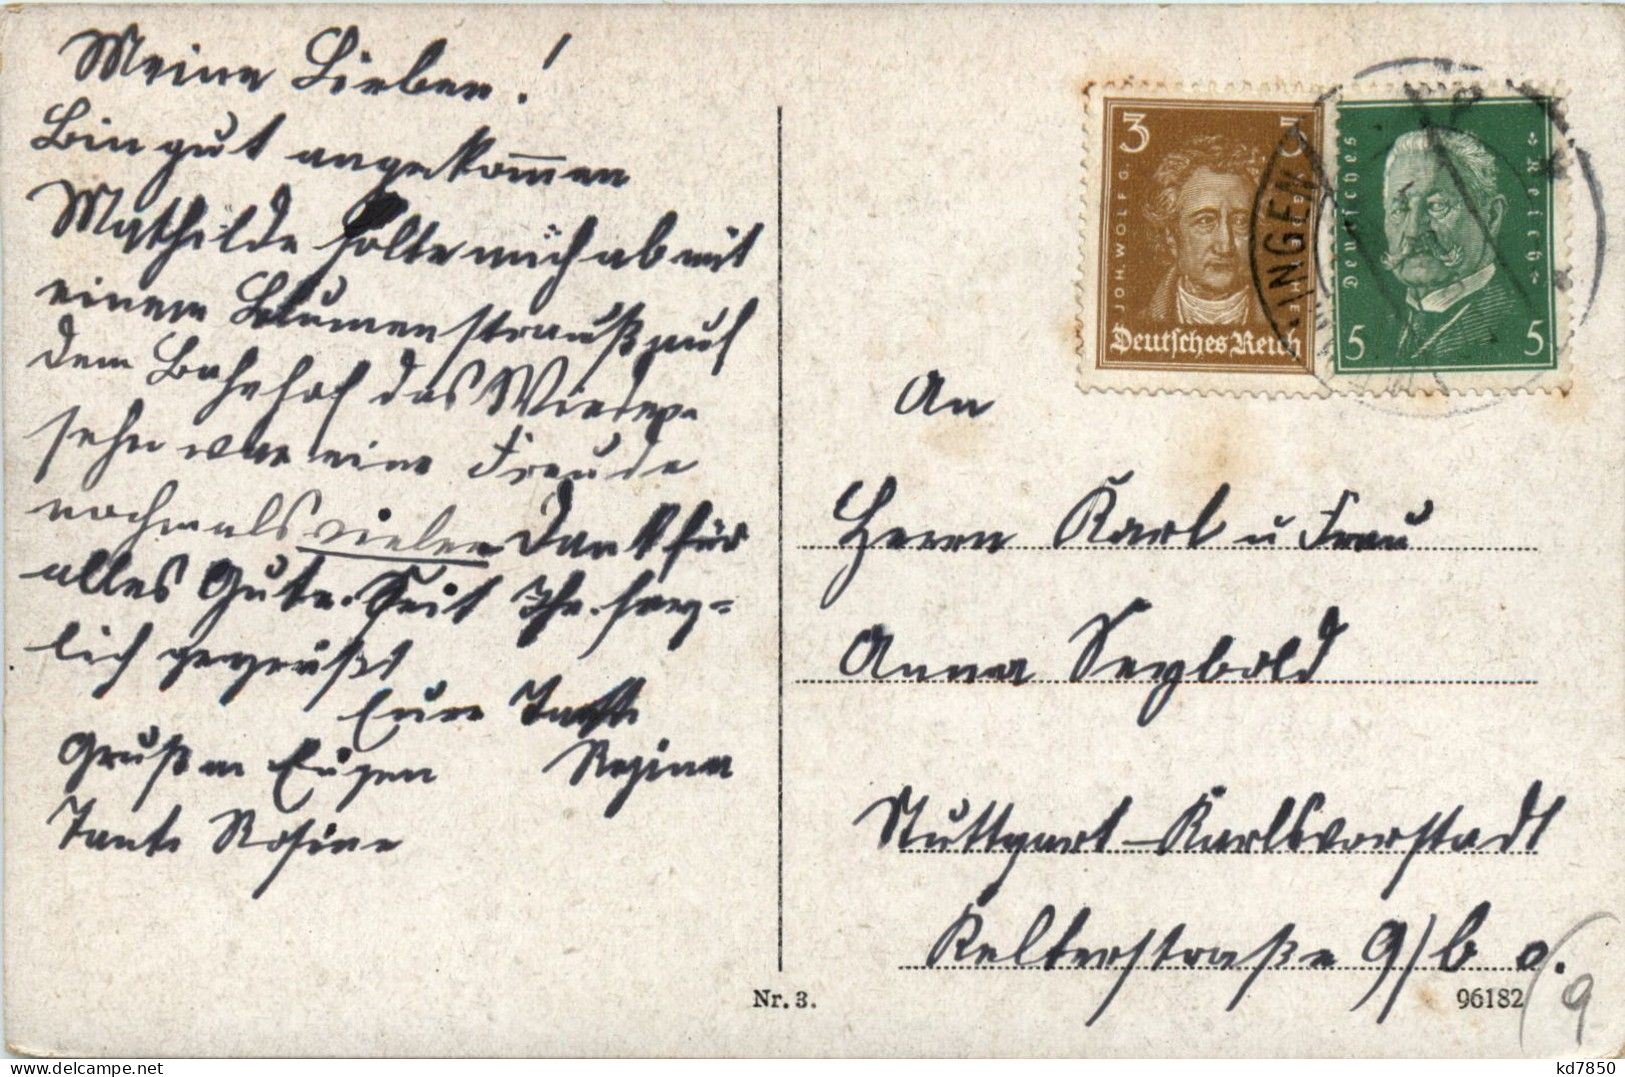 Meine Lieben!
Bin gut angekommen
Mathilde holte mich ab mit
einem Blumenstrauß auf
dem Bahnhof das Wieder-
sehn war eine Freude
nochmals vielen Dank für
alles Gute. Seit Ihr herz-
lich gegrüßt
Eure Tante
Regina
Gruß an Eugen
Tante Rosine
3 3
JOH. WOLFG.
Deutsches Reich
Deutsches Reich
5 5
INGEN
An
Herrn Karl u Frau
Anna Seybold
Stuttgart-Karlsvorstadt
Kelterstraße 9/b
Nr. 3.
96182
9
kd7850